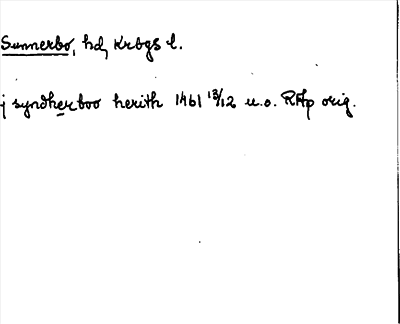 Sunnerbo, hd, Krbgs l.
j syndherboo herith 1461 13/12 u.o. RAp orig.